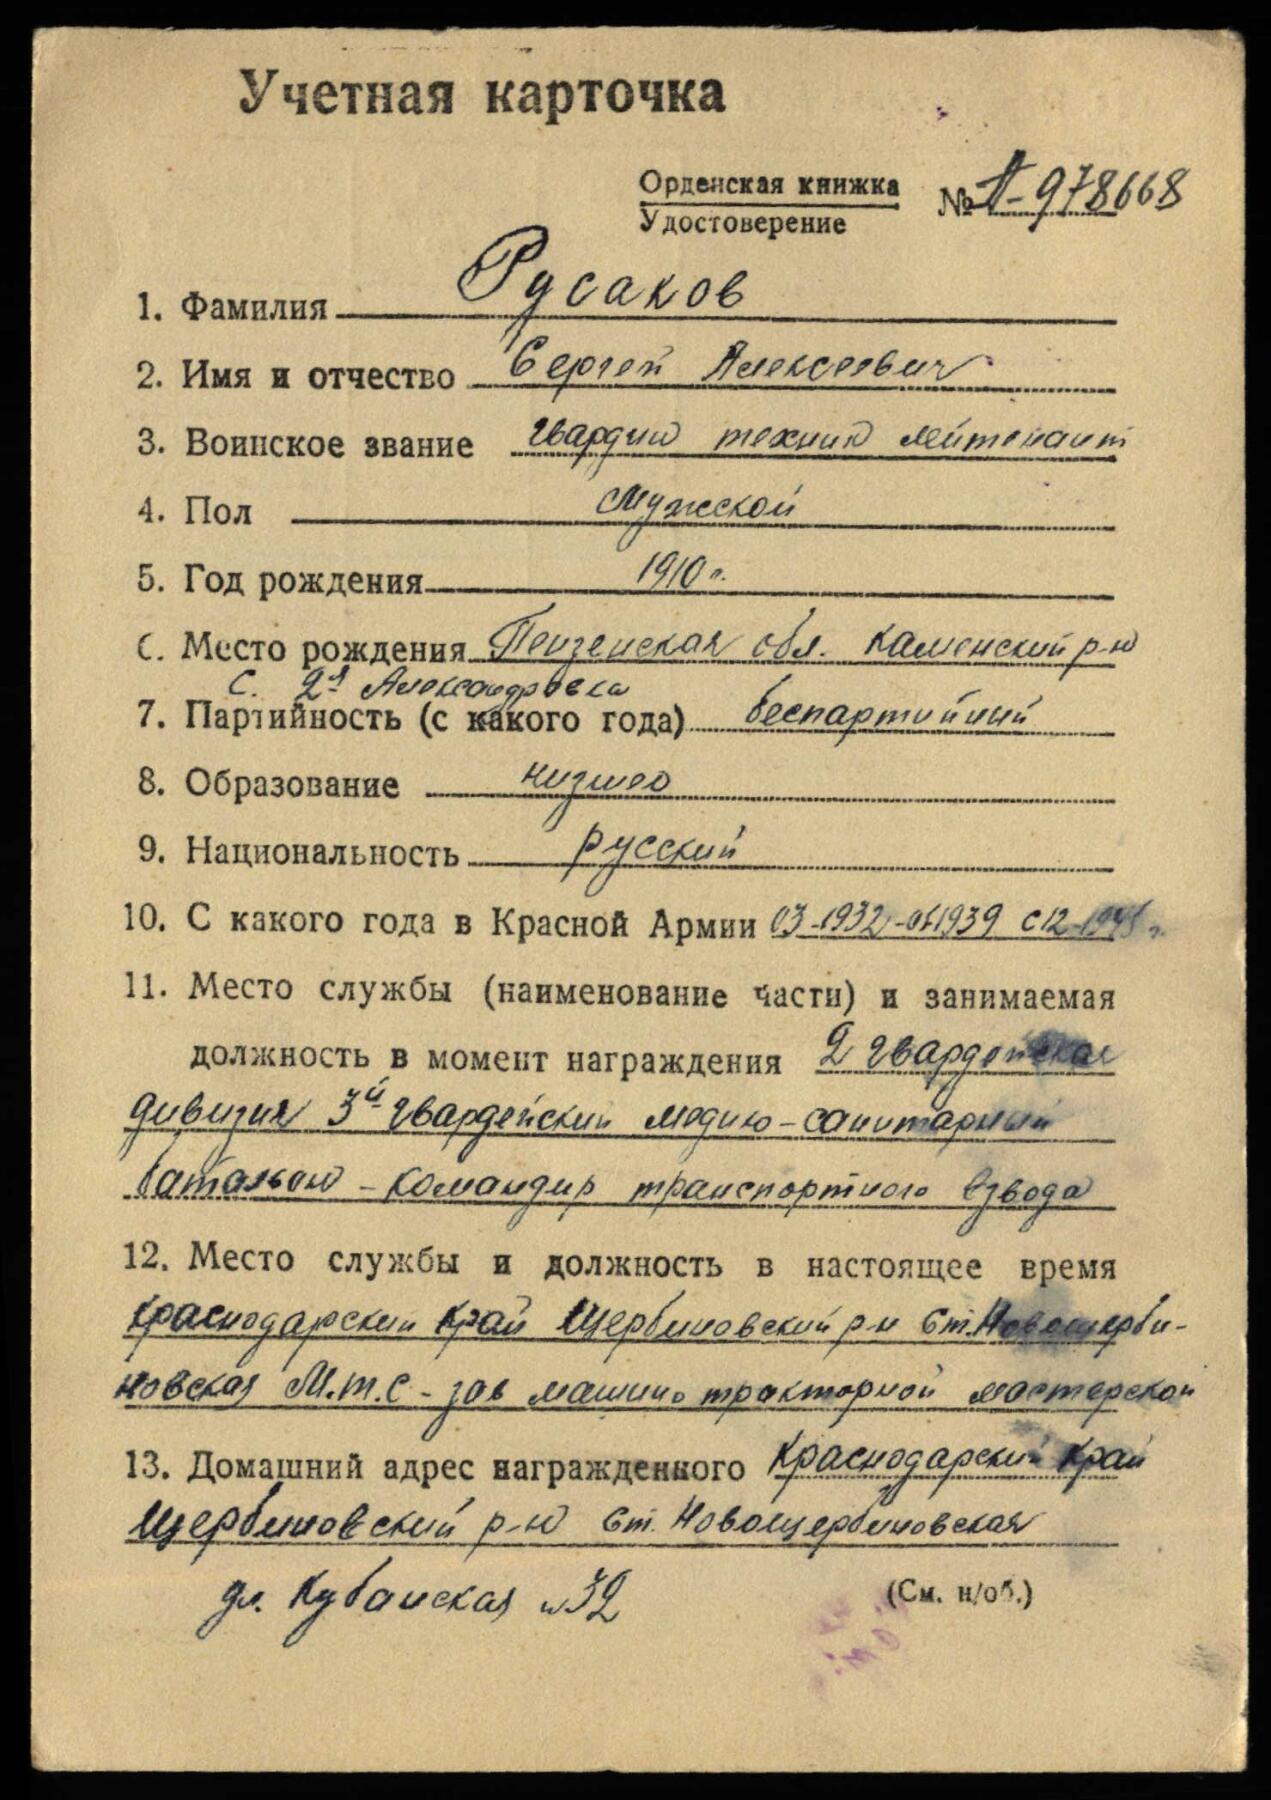 Учетная карточка
Орденская книжка
Удостоверение
№ А-978668
1. Фамилия Русаков
2. Имя и отчество Сергей Алексеевич
3. Воинское звание гвардии техник лейтенант
4. Пол мужской
5. Год рождения 1910 г.
6. Место рождения Пензенская обл. Каменский р-н
с. 2я Александровка
7. Партийность (с какого года) беспартийный
8. Образование низшее
9. Национальность русский
10. С какого года в Красной Армии 03-1932-041939 с 12-
11. Место службы (наименование части) и занимаемая
должность в момент награждения 2 гвардейская
дивизия 3й гвардейский медико-санитарный
батальон - командир транспортного взвода
12. Место службы и должность в настоящее время
Краснодарский край Щербиновский р-н ст. Новощерби-
новская М.Т.С - зав машино тракторной мастерской
13. Домашний адрес награжденного Краснодарский край
Щербиновский р-н ст. Новощербиновская
ул. Кубанская № 32
(См. н/об.)